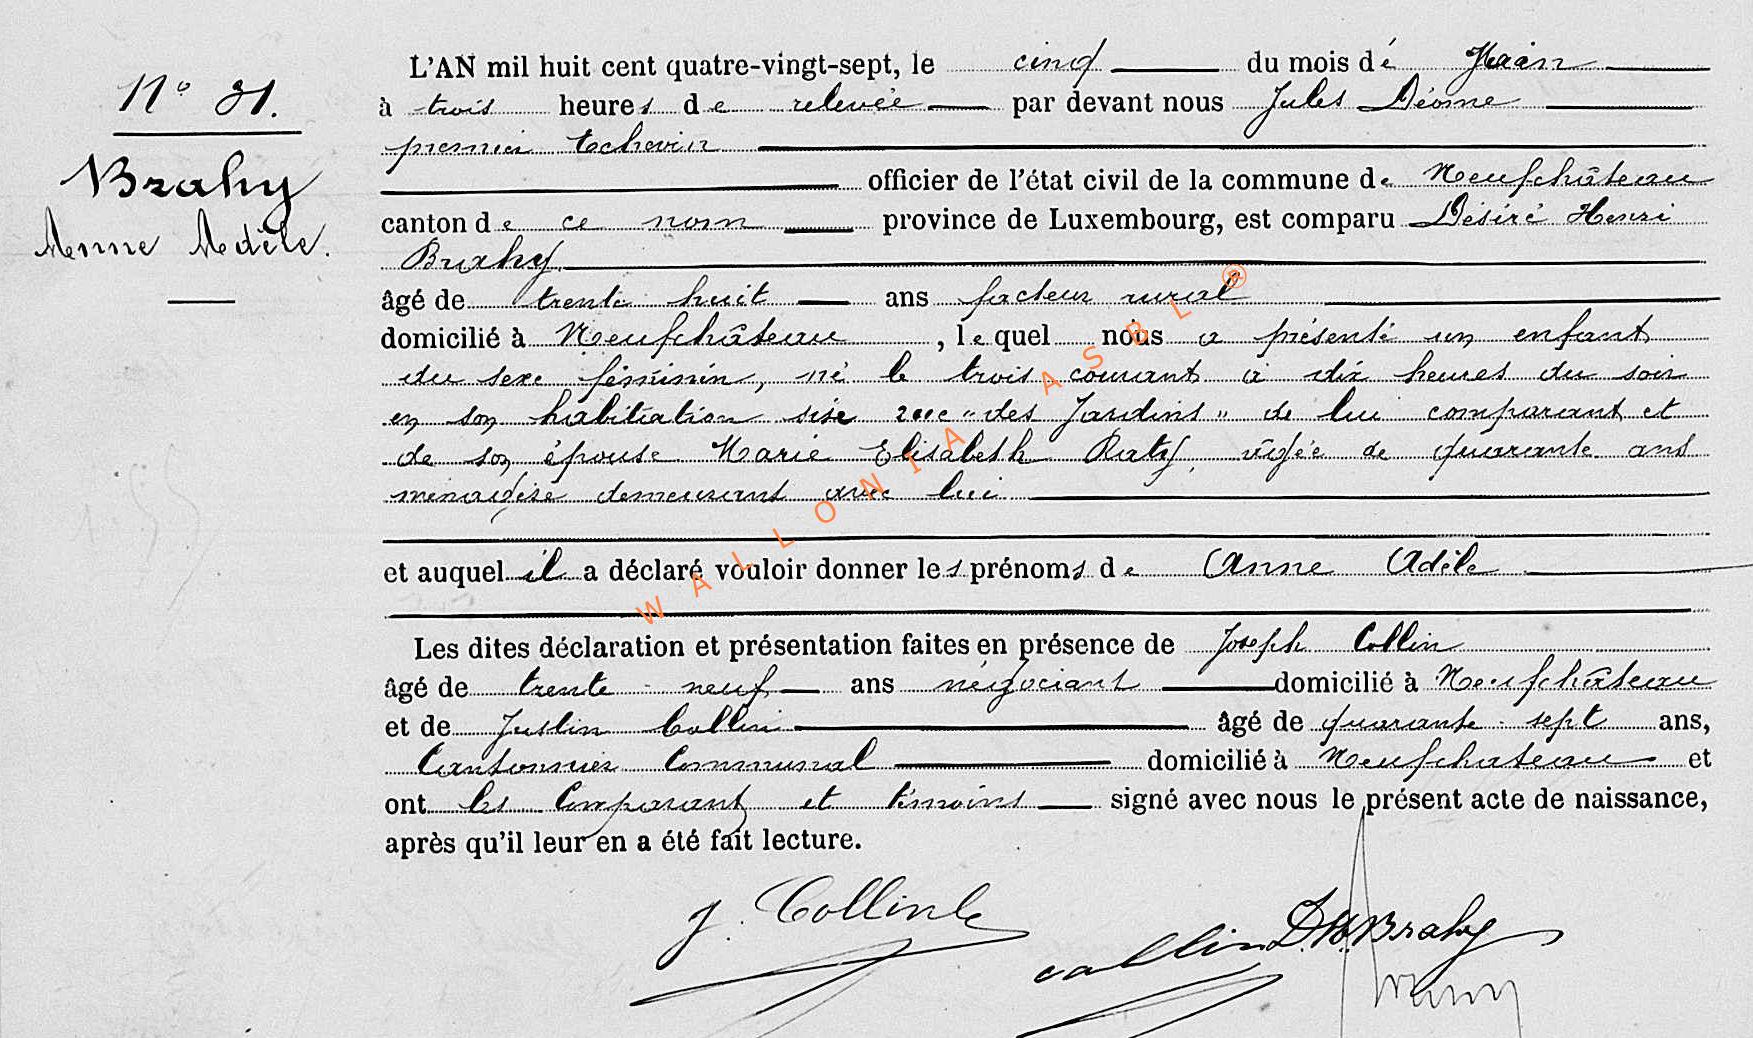 N° 31.
Brahy
Anne Adèle.
L'AN mil huit cent quatre-vingt-sept, le cinq du mois dé
à trois heures de relevée par devant nous Jules
premier Echevin
officier de l'état civil de la commune de Neufchâteau
canton de ce nom province de Luxembourg, est comparu Désiré Henri
Brahy
âgé de trente huit ans facteur rural
domicilié à Neufchâteau, lequel nous a présenté un enfant
du sexe féminin, né le trois courant à dix heures du soir
en son habitation sise rue "des Jardins" de lui comparant et
de son épouse Marie Elisabeth Raty, âgée de quarante ans
ménagère demeurant avec lui
et auquel il a déclaré vouloir donner les prénoms de Anne Adèle
Les dites déclaration et présentation faites en présence de Joseph Collin
âgé de trente-neuf ans négociant domicilié à Neufchâteau
et de Justin Collin âgé de quarante-sept ans,
Cantonnier Communal domicilié à Neufchateau et
ont les Comparant et témoins signé avec nous le présent acte de naissance,
après qu'il leur en a été fait lecture.
J. Collin
collin D.H. Brahy
WALLONIA ASBL ®